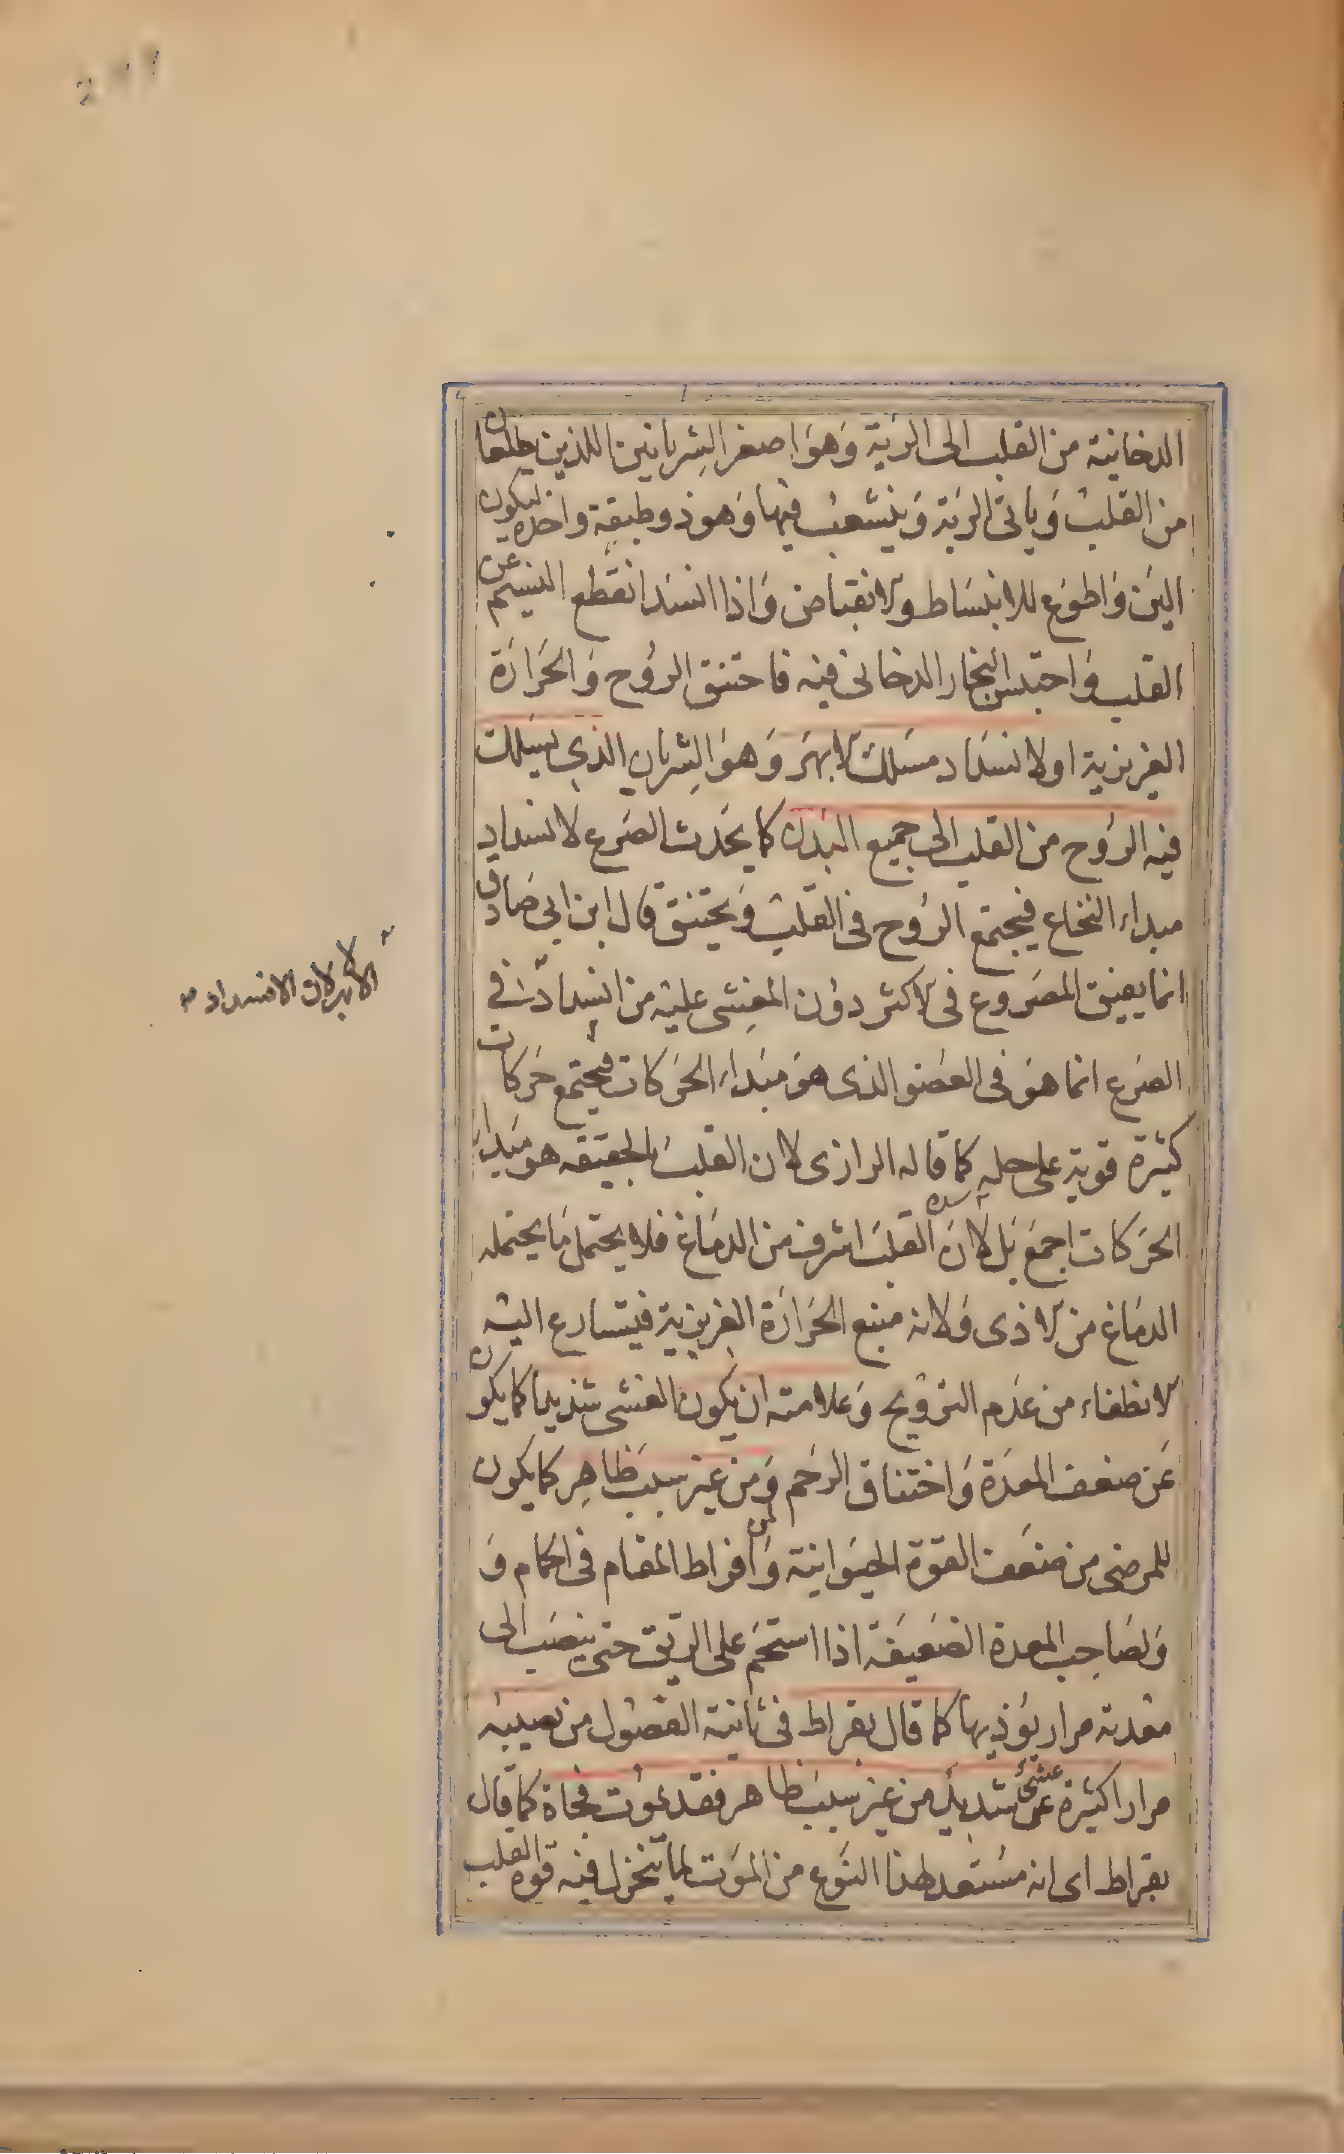 الدخانية من القلب الى الرية وَهوَ اصغر الشِريانين اللذين يطلعان
من القلب وَياتى الرية وَيتشعب فيها وَهوذو طبقة واحدة ليكون
الين وَاطوَع للانبسَاط والانقباض وَاذا انسَد انقطع النسيم عن
القلب وَاحتبس البخار الدخانى فيه فاختنق الروُح وَالحَرارَة
الغريزية اولانسدَاد مسَلك الابهَر وَهوَ الشِريان الذي يسَلك
فيه الروُح من القلب الى جميع البدن كما يحدث الصَرع لانسداد
مبداء النخاع فيجتمع الروُح فى القلب وَيختنق قال ابن ابى صَادق
انما يفيق المصَروع فى الاكثر دوُن المغشى عليه من انسداد الابهر لان الانسداد فى
الصَرع انما هوَ فى العضو الذى هوَ مبَداء الحَركات فيجتمع حَركات
كثيرة قوية على حله كما قاله الرازى لا ان القلب بالحقيقه هو مبَداء
الحَركات اجمَع بَل لانَ القلب اشرف من الدمَاغ فلا يحتمل مَا يحتمله
الدمَاغ من الاذى وَلانه منبع الحَرارَة الغريزية فيتسارع اليه
الانطفاء من عدَم الترويح وَعلامته ان يكون الغشى شديدا كما يكون
عَن ضعف المعدَة وَاختناق الرحَم وَمن غير سبب ظاهِر كما يكون
للمرضى من ضعَف القوة الحيَوانية وَلمن افراط المقام فى الحمام وَ
وَلصَاحِب المعدة الضعَيفَة اذا استحَم على الريق حتى ينصَب الى
معَدته مرار يوُذيها كما قال بقراط فى ثانية الفصُول من يصيبه
مرارا كثيرة غشى شديد من غير سبَب ظاهر فقد يموُت فجاة كما قال
بقراط اى انه مسُتعد لهذا النوَع من الموَت لما تنخزل فيه قوة القلب